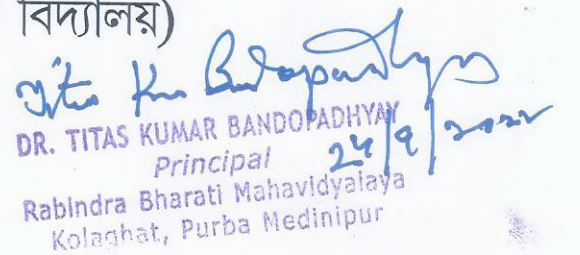 বিদ্যালয়)
Titas Kr Bandopadhyay
DR. TITAS KUMAR BANDOPADHYAY
24/9/2022
Principal
Rabindra Bharati Mahavidyalaya
Kolaghat, Purba Medinipur